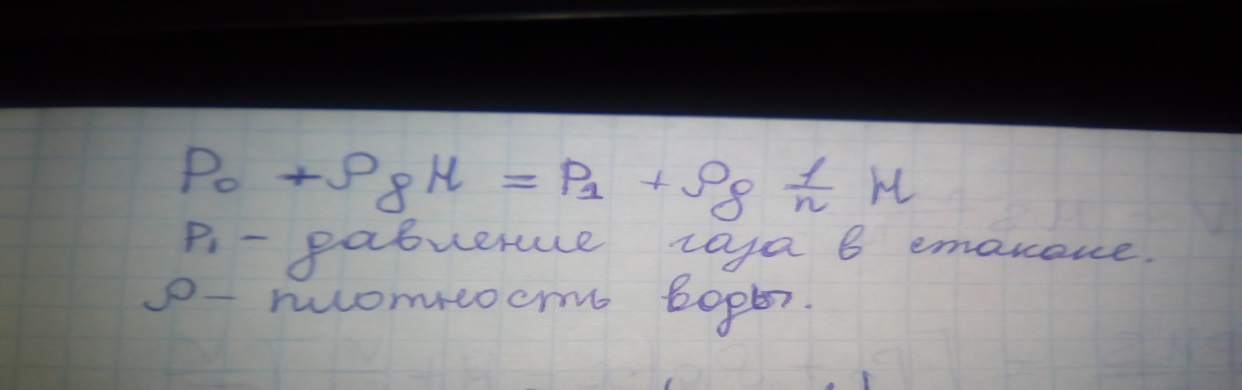 P₀ + ρgH = P₁ + ρg 1/n H
P₁ – давление газа в стакане.
ρ – плотность воды.